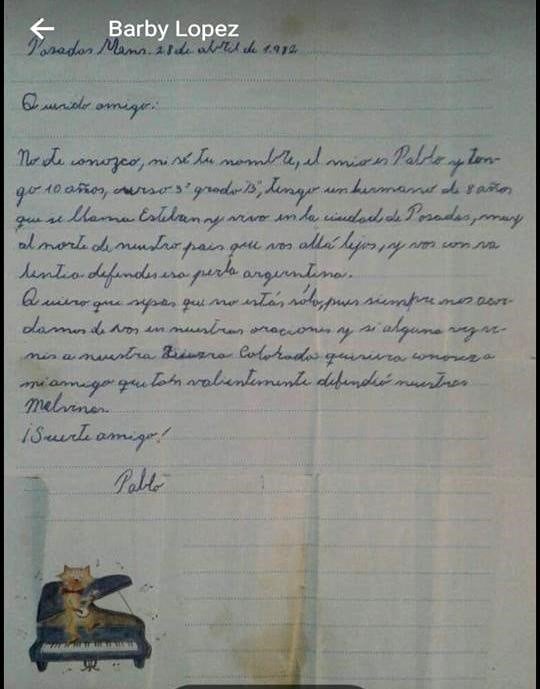 Barby Lopez
Posadas Mnes. 28 de abril de 1.982
Querido amigo:
No te conozco, ni sé tu nombre, el mio es Pablo y ten-
go 10 años, curso 5° grado "B", tengo un hermano de 8 años
que se llama Esteban y vivo en la ciudad de Posadas, muy
al norte de nuestro pais que vos allá lejos, y vos con va
lentia defendes esa perla argentina.
Quiero que sepas que no estás sólo, pues siempre nos acor-
damos de vos en nuestras oraciones y si alguna vez ve-
nis a nuestra Tierra Colorada quisiera conocer a
mi amigo que tan valientemente defendió nuestras
Malvinas.
¡Suerte amigo!
Pablo